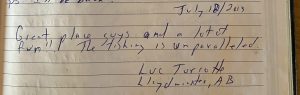 July 18/203
Great place guys and a lot of
fun! The fishing is unparalleled.
Luc Turcotte
Lloydminster, AB